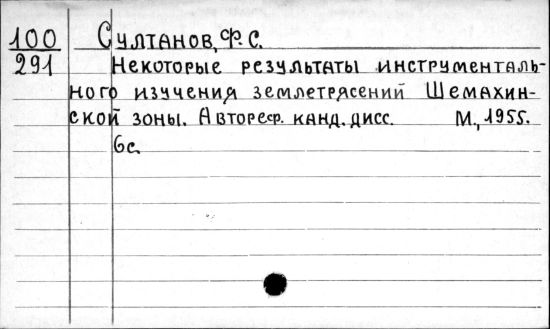 100 Султанов, Ф. С.
291 Некоторые результаты инструменталь-
ного изучения землетрясений Шемахин-
ской зоны. Автореф. канд. дисс. М., 1955.
6с.